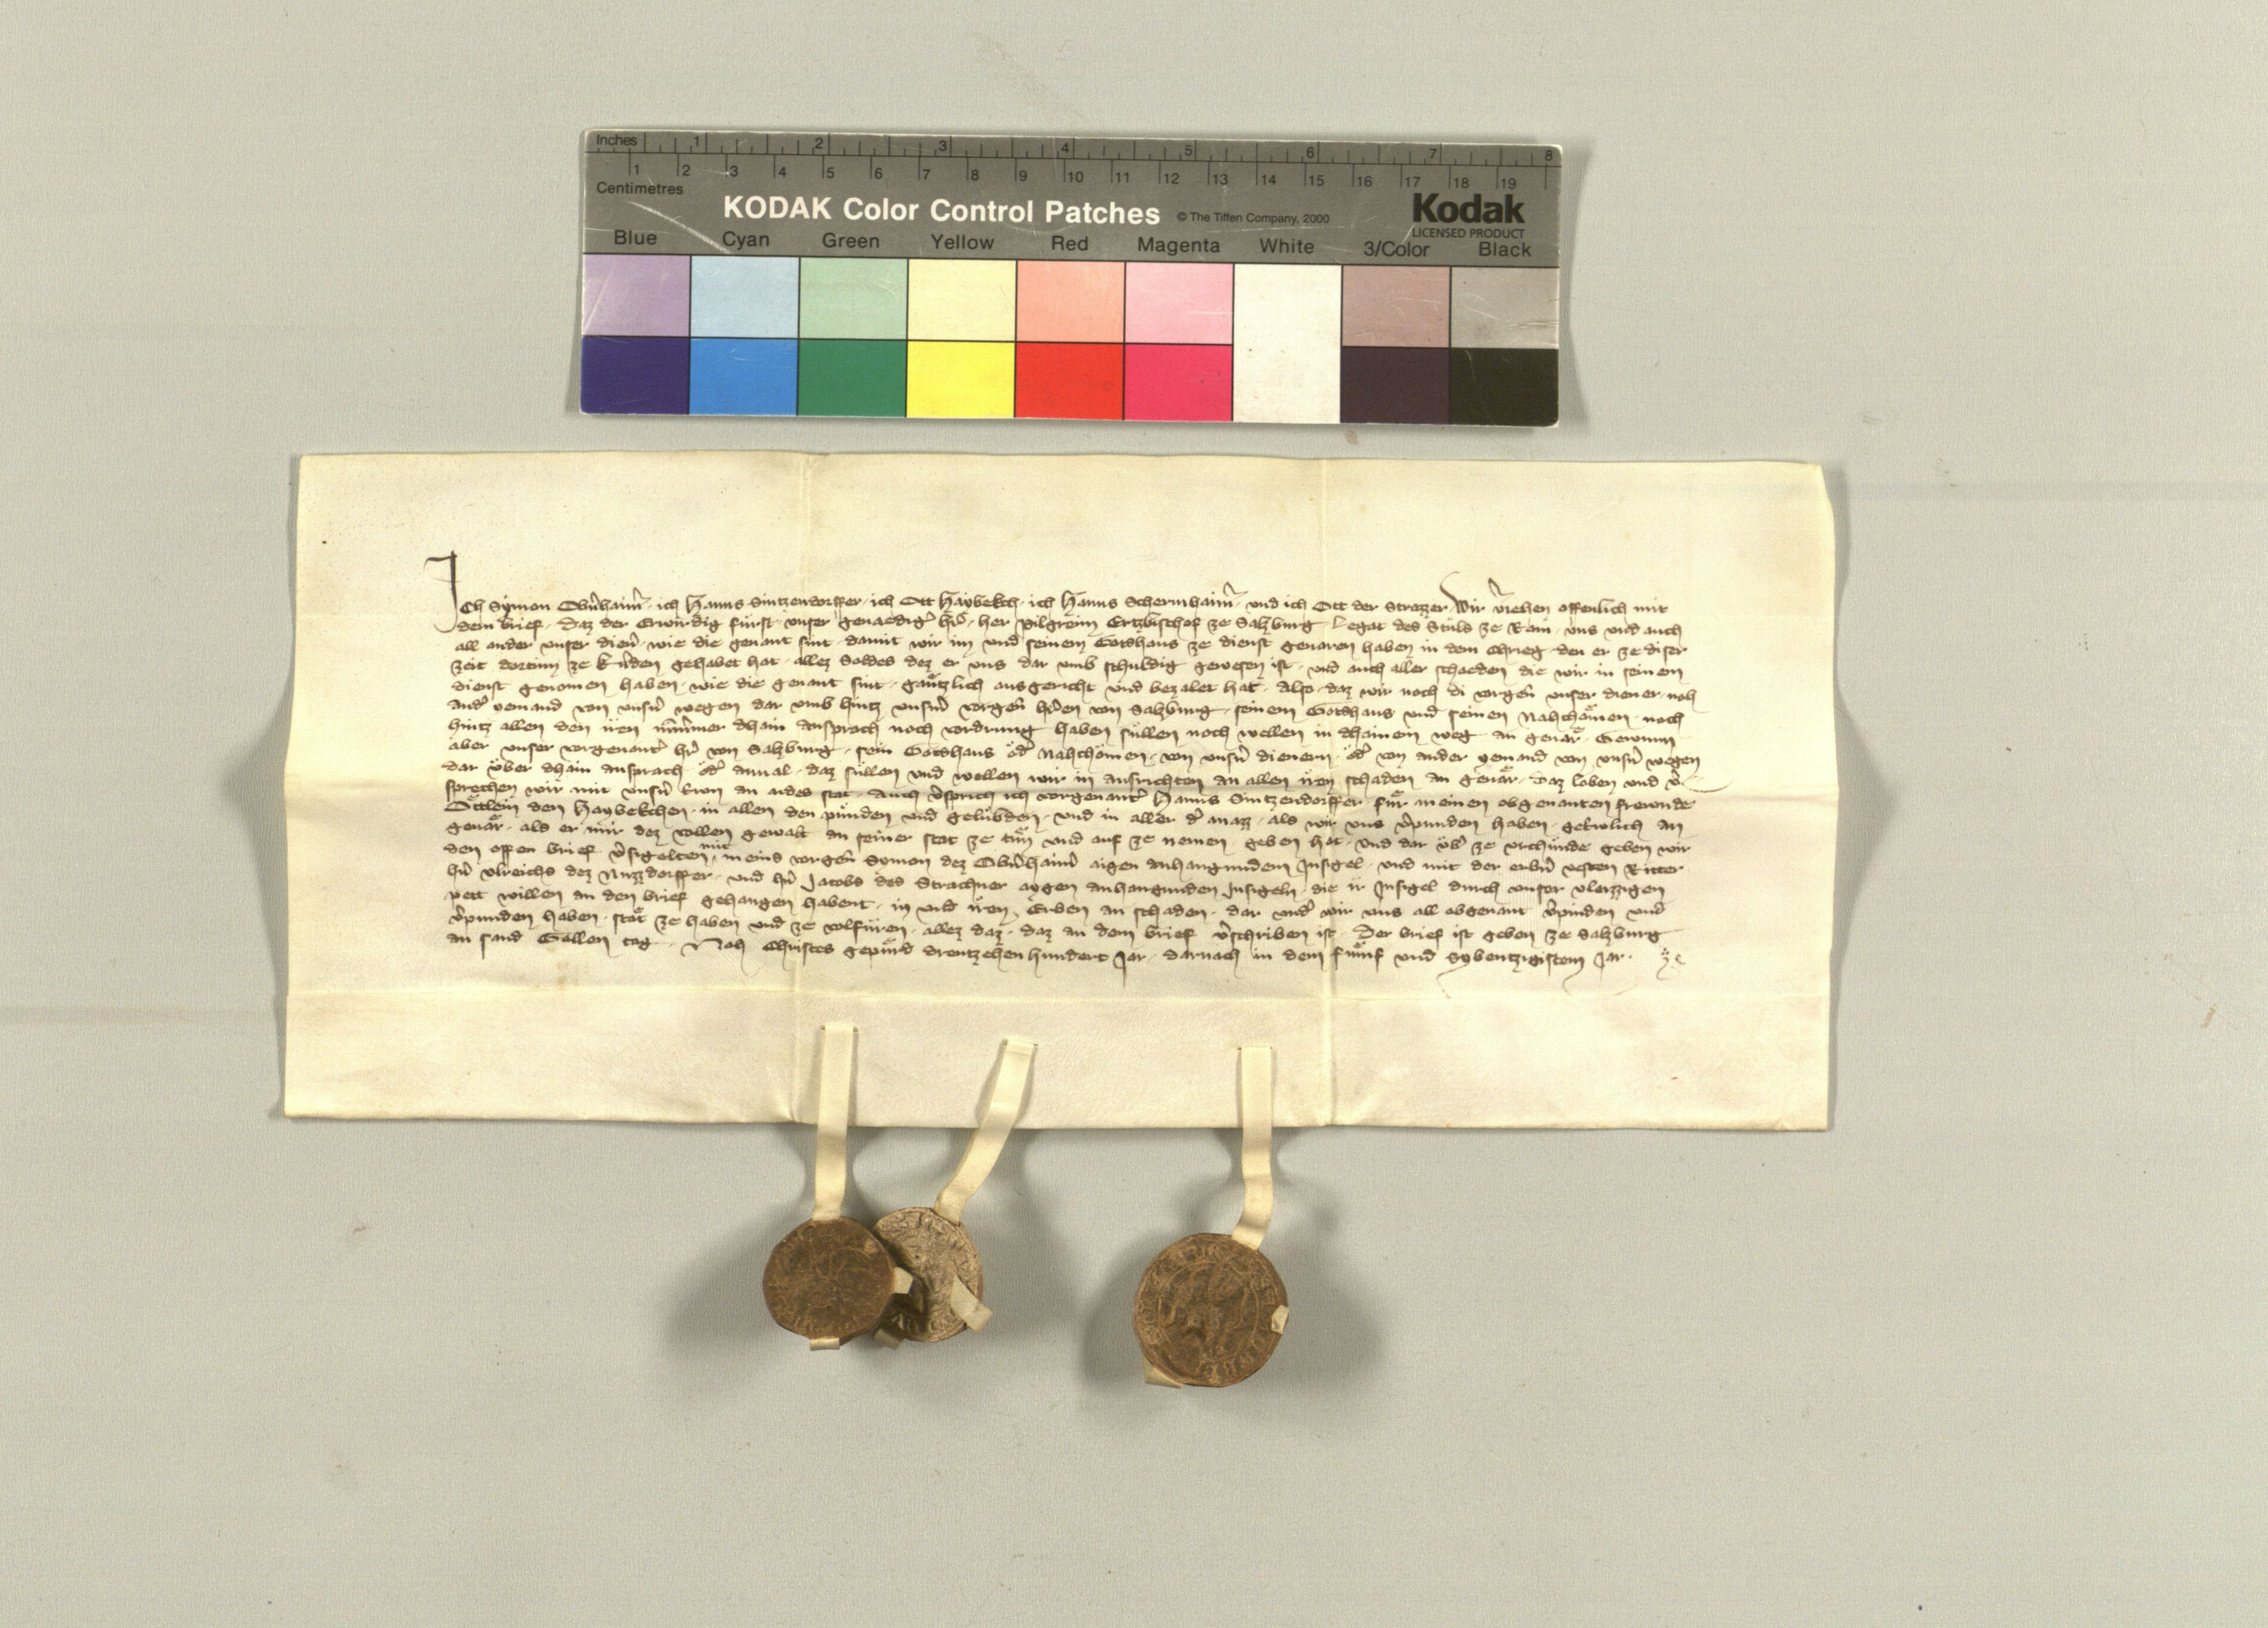 Inches 1 2 3 4 5 6 7 8
1 2 3 4 5 6 7 8 9 10 11 12 13 14 15 16 17 18 19
Centimetres
KODAK Color Control Patches © The Tiffen Company, 2000 Kodak
LICENSED PRODUCT
Blue Cyan Green Yellow Red Magenta White 3/Color Black
Ich Symon Obnhaim, ich Hanns Sintzendorffer, ich Ott Haybekch, ich Hanns Schermhaim, und ich Ott der Strazzer, Wir veriehen offenlich mit
dem brief, Daz der Erwirdig fürst, unser genaediger her, her Pilgreim Ertzbischof ze Saltzburg Legat des Stuls ze Rom, uns und auch
all ander unser diener, wie die genant sint, damit wir im und seinem Gotshaus ze dienst gevaren haben in dem chrieg, den er ze diser
zeit gehabet hat, allez Soldes dez er uns dar umb schuldig gewesen ist, und auch aller schaeden die wir in seinem
dienst genomen haben, wie die genant sint, gäntzlich ausgericht und bezalet hat, Also, daz wir noch di vorgen unser diener, noh
ander yemand von unsern wegen dar umb hintz unserm vorgen herren von Saltzburg, seinem Gotshaus und seinen Nahchömen, noch
hintz allen den iren nimmer dhain ansprach noch vordrung haben süllen noch wellen in dhainem weg an gevär, Gewunn
aber unser vorgenanter her von Saltzburg, sein Gotshaus oder Nahchömen, von unsern dienern, oder von ander yemand von unsern wegen
dar über dhain ansprach oder anval, daz süllen und wellen wir in ausrichten an allen iren schaden an gevär, Daz loben und ver
sprechen wir mit unsern trewn an aides stat, Auch versprich ich vorgenanter Hanns Sintzendorffer für meinen obgenanten frewnde
Öttlein den Haybekchen, in allen den pünden und gelübden, und in aller der mazz, als wir uns verpunden haben, getrwlich an
gevär, als er mir dez vollen gewalt an seiner stat ze tün und auf ze nemen, geben hat, und dar über ze urchünde geben wir
den offen brief versigelten mit meins vorgen Symon dez Obnhaim aigen anhangundem Insigel, und mit der erbern vesten Ritter
hern Ulreichs dez Nuzzdorffer, und hern Jacobs des Strachner aygen anhangunden Insigeln, die ir Insigel durch unser vleizzigen
pett willen an den brief gehangen habent, in und iren Erben an schaden, dar under wir uns all obgenant verpinden und
verpunden haben, stät ze haben und ze volfüren, allez daz, daz an dem brief verschriben ist, Der brief ist geben ze Saltzburg
an sand Gallen tag, Nah Christes gepürd drewtzehen hundert Jar, darnach in dem fümf und Sybentzigistem Jar.